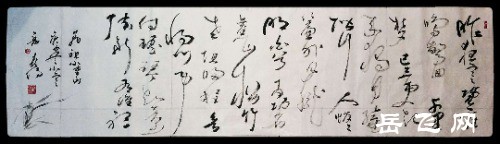 昨夜寒蛩不住
鸣惊回千里
梦已三更起
来独自绕
阶行人悄
悄帘外月胧
明白首为功名
旧山松竹
老阻归程欲
将心事
付瑶琴知音少
弦断有谁听
岳飞小重山
岳飞网